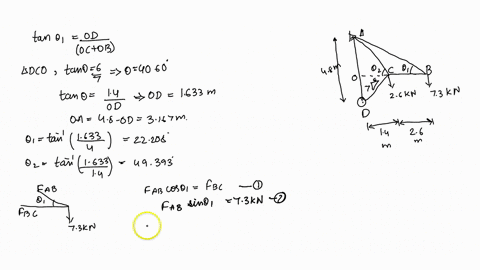 tan θ1 = OD
(OC+OB)
ΔDCO, tanθ = 6/7 => θ = 40.60°
tanθ = 1.4/OD => OD = 1.633 m
OA = 4.8 - OD = 3.167 m.
θ1 = tan⁻¹(1.633/4) = 22.208°
θ2 = tan⁻¹(1.633/1.4) = 49.393°
FAB
θ1
FBC
7.3KN
FAB cosθ1 = FBC —①
FAB sinθ1 = 7.3KN —②
A
4.8m
O θ2 C θ1 B
7 6
D
2.6KN
7.3KN
1.4 2.6
m m